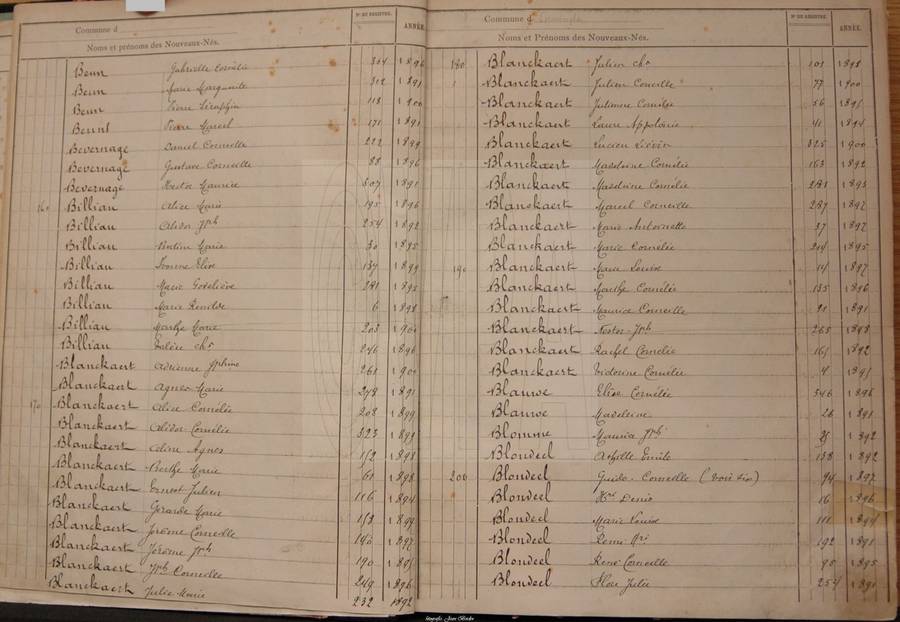 Commune d
Nº DE REGISTRE.
ANNÉE
Noms et prénoms des Nouveaux-Nés.
Beun Gabrielle Cornélie 304 1896
Beun Marie Marguerite 302 1891
Beun Pierre Séraphin 118 1900
Beunt Pierre Marcel 171 1891
Bevernage Daniel Corneille 222 1899
Bevernage Gustave Corneille 88 1896
Bevernage Hector Maurice 307 1891
160 Billiau Alice Marie 195 1896
Billiau Alidor Jph 254 1892
Billiau Marie 30 1895
Billiau Irénée Elise 137 1899
Billiau Marie Godelieve 281 1895
Billiau Marie Remilde 6 1898
Billiau Marthe Marie 203 1900
Billiau Valère Chs 246 1896
Blanckaert Adrienne Jphine 261 1900
Blanckaert Agnes Marie 248 1891
170 Blanckaert Alice Cornélie 208 1899
Blanckaert Alidor Cornélie 323 1899
Blanckaert Celine Agnes 112 1898
Blanckaert Berthe Marie 61 1898
Blanckaert Ernest Julien 116 1894
Blanckaert Gérarde Marie 1899
Blanckaert Jérôme Corneille 190 1897
Blanckaert Jérôme Jph 190
Blanckaert Jph Corneille 249 1896
Blanckaert Julie Marie 232 1892
Commune d
Nº DE REGISTRE.
ANNÉE.
Noms et Prénoms des Nouveaux-Nés.
180 Blanckaert Julien Chs 101 1898
Blanckaert Julien Corneille 77 1900
Blanckaert Julienne Cornélie 56 1895
Blanckaert Laure Appolonie 41 1894
Blanckaert Lucien Liévin 325 1900
Blanckaert Madeleine Cornélie 163 1892
Blanckaert Madeleine Cornélie 281 1895
Blanckaert Marcel Corneille 287 1897
Blanckaert Marie Antoinette 37 1897
Blanckaert Marie Cornélie 204 1895
190 Blanckaert Marie Louise 14 1897
Blanckaert Marthe Cornélie 135 1896
Blanckaert Maurice Corneille 91 1891
Blanckaert Nestor Jph 265 1898
Blanckaert Rachel Cornélie 161 1892
Blanckaert Victorine Cornélie 4 1895
Blauwe Elise Cornélie 346 1896
Blauwe Madeleine 26 1891
Blomme Maurice Jph 1892
Blondeel Achille Emile 138 1892
200 Blondeel Guido Corneille (Voir six) 94 1897
Blondeel Hri Denis 16 1896
Blondeel Marie Louise 111 1894
Blondeel Remi 192 1891
Blondeel René Corneille 90 1895
Blondeel Flore Julie 254 1890